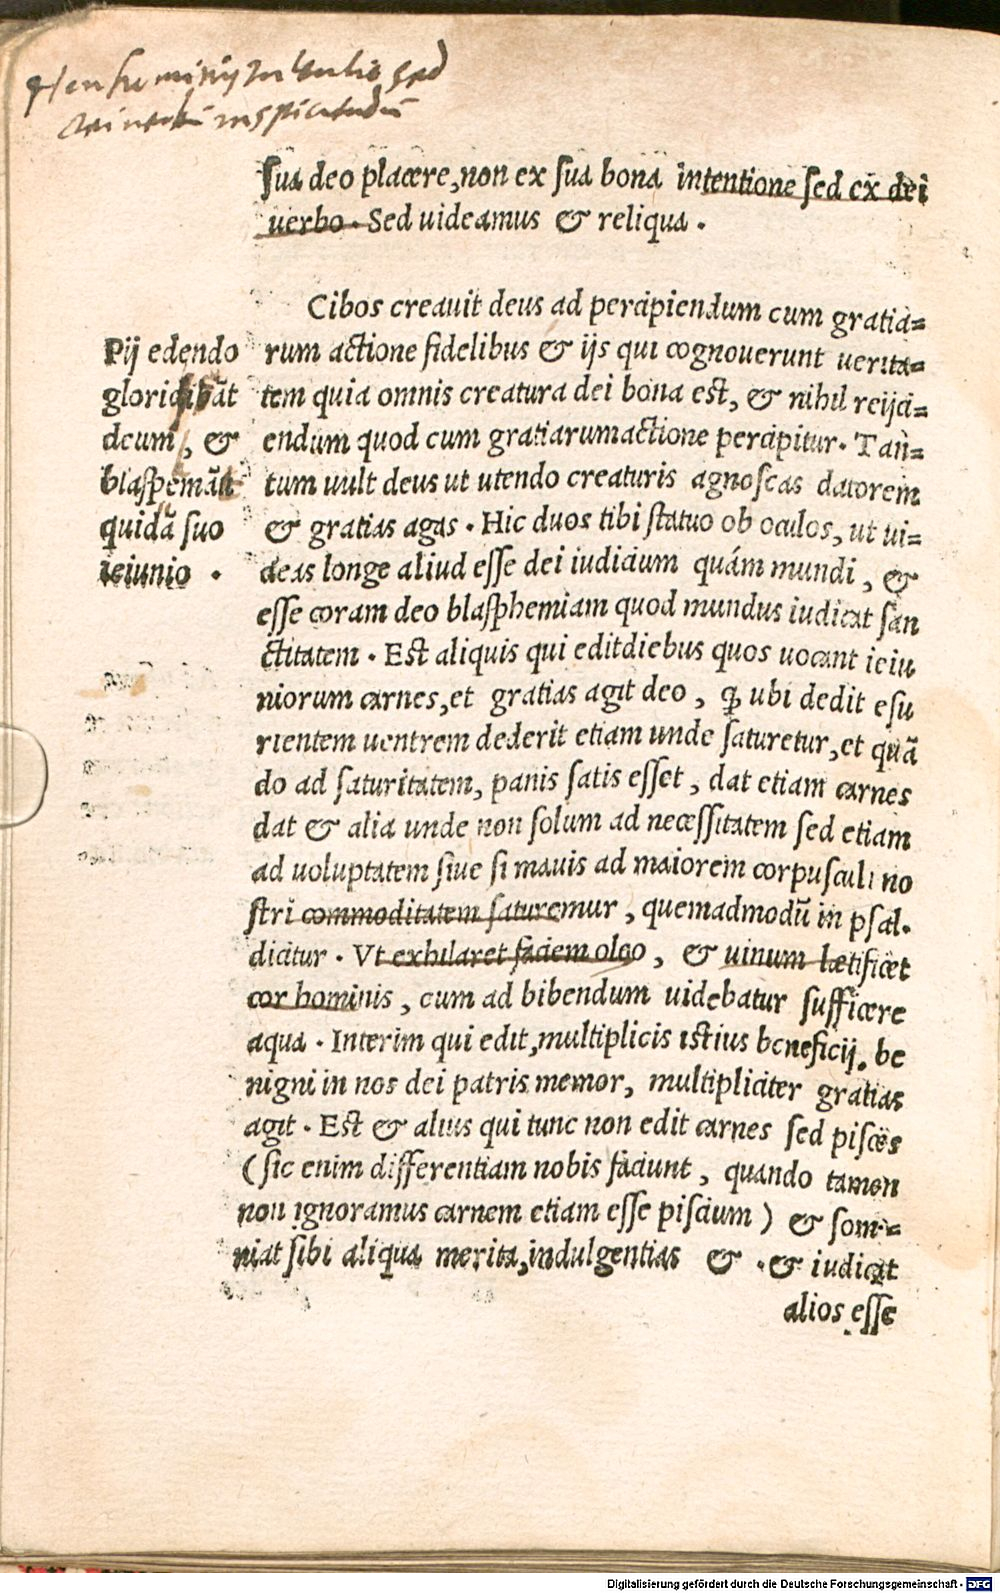 sua deo placere, non ex sua bona intentione sed ex dei
uerbo. Sed uideamus & reliqua.
Cibos creauit deus ad percipiendum cum gratia=
rum actione fidelibus & ijs qui cognouerunt uerita=
tem quia omnis creatura dei bona est, & nihil reijci=
endum quod cum gratiarumactione percipitur. Tan=
tum uult deus ut utendo creaturis agnoscas datorem
& gratias agas. Hic duos tibi statuo ob oculos, ut ui=
deas longe aliud esse dei iudicium quám mundi, &
esse coram deo blasphemiam quod mundus iudicat san
ctitatem. Est aliquis qui editdiebus quos uocant ieiu
niorum carnes, et gratias agit deo, ꝙ ubi dedit esu
rientem uentrem dederit etiam unde saturetur, et quā
do ad saturitatem, panis satis esset, dat etiam carnes
dat & alia unde non solum ad necessitatem sed etiam
ad uoluptatem siue si mauis ad maiorem corpusculi no
stri commoditatem saturemur, quemadmodū in psal.
dicitur. Vt exhilaret faciem oleo, & uinum lætificet
cor hominis, cum ad bibendum uidebatur sufficere
aqua. Interim qui edit, multiplicis istius beneficij, be
nigni in nos dei patris memor, multipliciter gratias
agit. Est & alius qui tunc non edit carnes sed pisces
(sic enim differentiam nobis faciunt, quando tamen
non ignoramus carnem etiam esse piscium) & som=
niat sibi aliqua merita, indulgentias & . & iudicat
alios esse
Pij edendo
glorificāt
deum, &
blaspemāt
quidā suo
ieiunio .
Digitalisierung gefördert durch die Deutsche Forschungsgemeinschaft - DFG